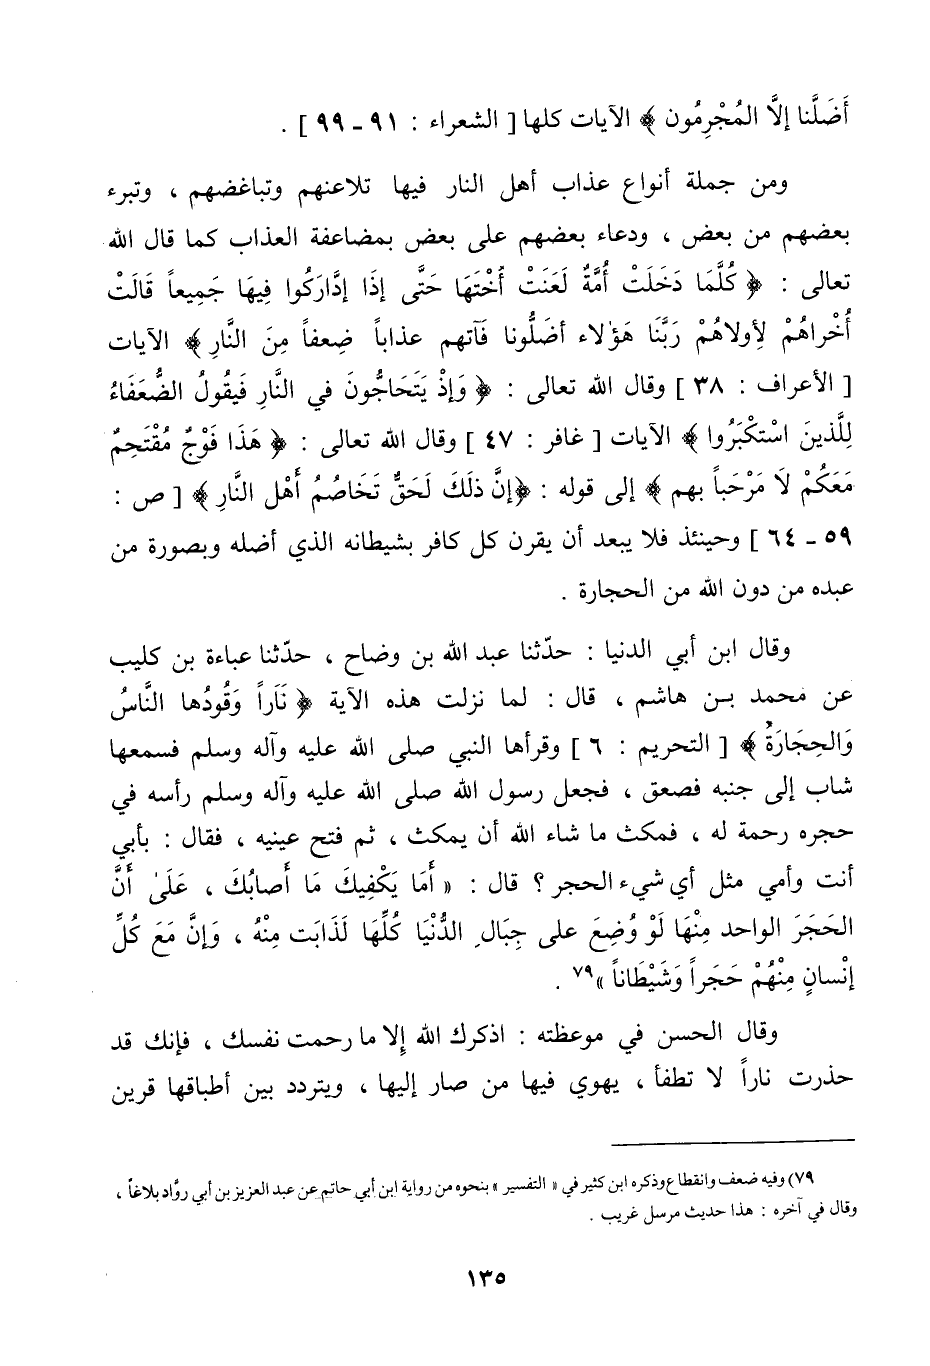 أَضَلَّنا إلَّا المُجْرِمُون ﴾ الآيات كلها [ الشعراء : ٩١ ـ ٩٩ ] .
ومن جملة أنواع عذاب أهل النار فيها تلاعنهم وتباغضهم ، وتبرء
بعضهم من بعض ، ودعاء بعضهم على بعض بمضاعفة العذاب كما قال الله
تعالى : ﴿ كُلَّمَا دَخَلَتْ أُمَّةٌ لَعَنَتْ أُخْتَهَا حَتَّى إذَا إدَّارَكُوا فِيهَا جَمِيعاً قَالَتْ
أُخْراهُمْ لِأولاهُمْ رَبَّنَا هَؤلاء أضَلُّونا فَآتهم عذاباً ضِعفاً مِنَ النَّارِ ﴾ الآيات
[ الأعراف : ٣٨ ] وقال الله تعالى : ﴿ وَإذْ يَتَحَاجُّونَ في النَّارِ فَيقُولُ الضُّعَفَاءُ
لِلَّذينَ اسْتكْبَرُوا ﴾ الآيات [ غافر : ٤٧ ] وقال الله تعالى : ﴿ هَذَا فَوْجٌ مُقْتَحِمٌ
مَعَكُمْ لَا مَرْحَباً بهم ﴾ إلى قوله : ﴿إنَّ ذلَكَ لَحَقٌّ تَخَاصُمُ أَهْل النَّارِ ﴾ [ ص :
٥٩ ـ ٦٤ ] وحينئذ فلا يبعد أن يقرن كل كافر بشيطانه الذي أضله وبصورة من
عبده من دون الله من الحجارة .
وقال ابن أبي الدنيا : حدّثنا عبد الله بن وضاح ، حدّثنا عباءة بن كليب
عن محمد بن هاشم ، قال : لما نزلت هذه الآية ﴿ نَاراً وَقُودُها النَّاسُ
وَالحِجَارَةُ ﴾ [ التحريم : ٦ ] وقرأها النبي صلى الله عليه وآله وسلم فسمعها
شاب إلى جنبه فصعق ، فجعل رسول الله صلى الله عليه وآله وسلم رأسه في
حجره رحمة له ، فمكث ما شاء الله أن يمكث ، ثم فتح عينيه ، فقال : بأبي
أنت وأمي مثل أي شيء الحجر ؟ قال : « أَمَا يَكْفِيكَ مَا أَصابُكَ ، عَلَى أَنَّ
الحَجَرَ الواحد مِنْهَا لَوْ وُضِعَ على جِبَالِ الدُّنْيَا كُلِّهَا لَذَابَت مِنْهُ ، وَإنَّ مَعَ كُلِّ
إنْسانٍ مِنْهُمْ حَجَراً وَشَيْطَاناً »٧٩ .
وقال الحسن في موعظته : اذكرك الله إِلا ما رحمت نفسك ، فإنك قد
حذرت ناراً لا تطفأ ، يهوي فيها من صار إليها ، ويتردد بين أطباقها قرين
٧٩) وفيه ضعف وانقطاع وذكره ابن كثير في « التفسير » بنحوه من رواية ابن أبي حاتم عن عبد العزيز بن أبي روَّاد بلاغاً ،
وقال في آخره : هذا حديث مرسل غريب .
١٣٥